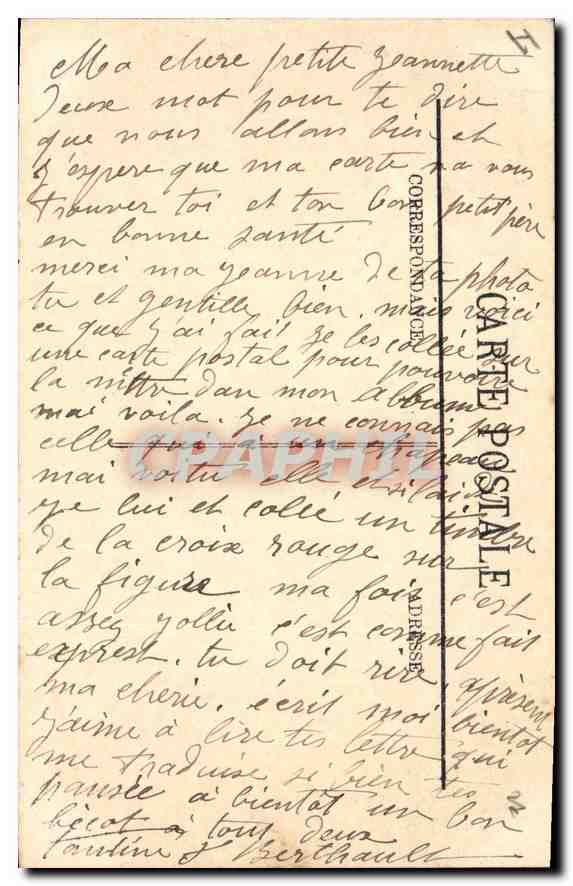 Ma chere petite Jeannette
deux mot pour te dire
que nous allons bien et
j'espere que ma carte va vous
trouver toi et ton bon petit père
en bonne santé
merci ma Jeanne de ta photo
tu et gentille bien. mais voici
ce que j'ai fai je les collée sur
une carte postal pour pouvoire
la mettre dan mon Albume
mai voila. je ne connais pas
celle qui a un chapeau
mai voitu elle et
je lui et collé un timbre
de la croix rouge sur
la figure ma foix c'est
assez jollie c'est comme fait
exprest. tu doit rire, apresent
ma cherie. écrit moi bientot
j'aime à lire tes lettre qui
me traduise si bien tes
pansée à bientot un bon
bécot à tout deux
Berthault
CORRESPONDANCE
ADRESSE
CARTE POSTALE
CPAPHIL